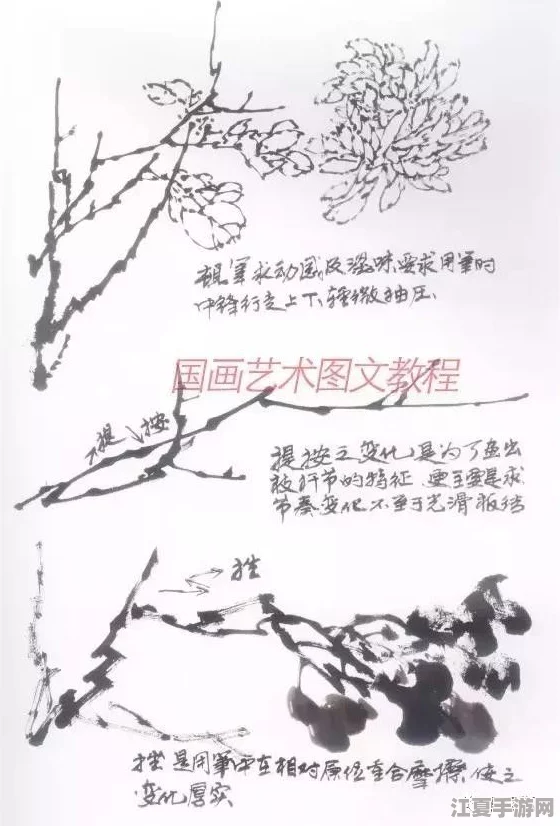 颤笔求动感及涩味要求用笔时
中锋行走上下轻微抽压.
国画艺术图文教程
提 按
提按之变化是为了画出
枝干节的特征.更主要是求
节奏变化不至于光滑板结
挫
挫是用笔在相对原位重合摩擦使之
变化厚实
江夏手游网